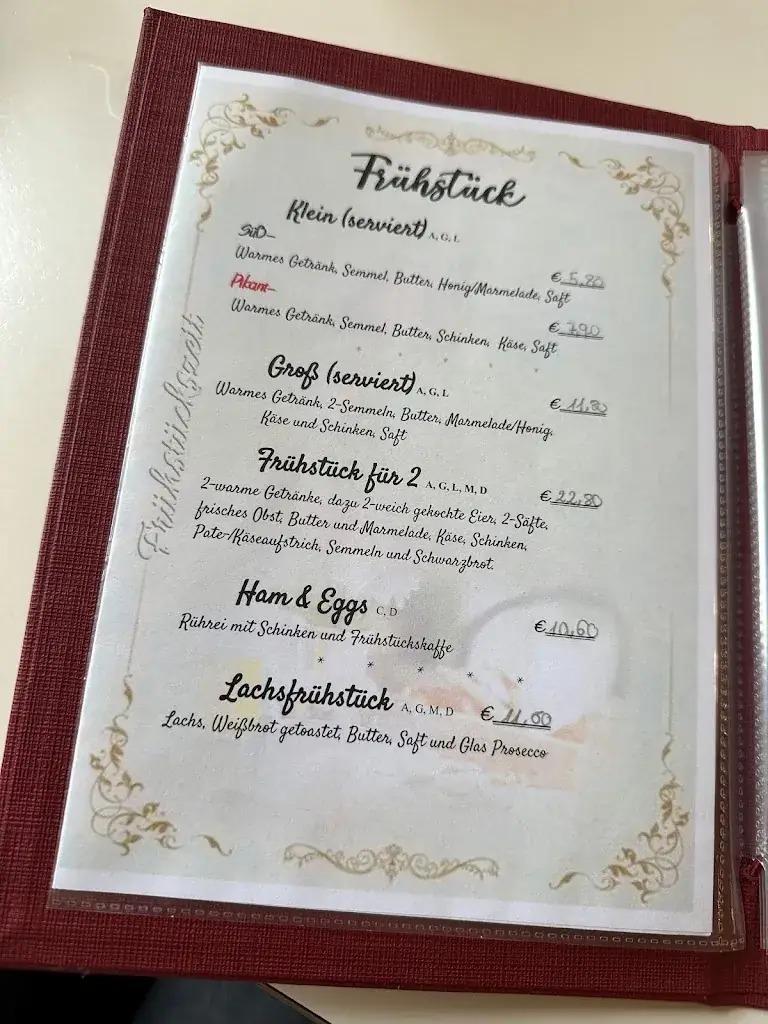 Frühstück
Klein (serviert) A, G, L
Süß-
Warmes Getränk, Semmel, Butter, Honig/Marmelade, Saft € 5,80
Pikant-
Warmes Getränk, Semmel, Butter, Schinken, Käse, Saft € 7,90
Groß (serviert) A, G, L € 11,80
Warmes Getränk, 2-Semmeln, Butter, Marmelade/Honig,
Käse und Schinken, Saft
Frühstück für 2 A, G, L, M, D € 22,80
2-warme Getränke, dazu 2-weich gekochte Eier, 2-Säfte,
frisches Obst, Butter und Marmelade, Käse, Schinken,
Pate-/Käseaufstrich, Semmeln und Schwarzbrot.
Ham & Eggs C, D € 10,60
Rührei mit Schinken und Frühstückskaffe
* * * * *
Lachsfrühstück A, G, M, D € 11,60
Lachs, Weißbrot getoastet, Butter, Saft und Glas Prosecco
Frühstückszeit